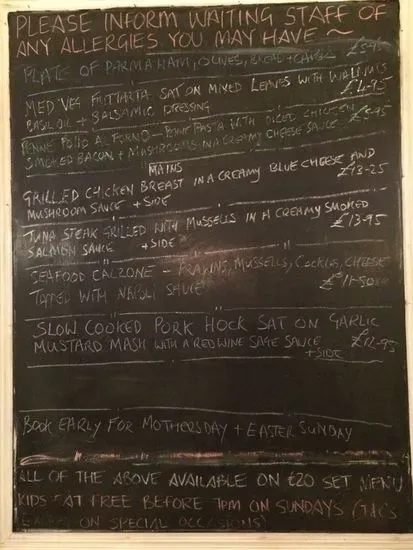 PLEASE INFORM WAITING STAFF OF
ANY ALLERGIES YOU MAY HAVE ~
PLATE OF PARMA HAM, OLIVES, BREAD + CAPERS £5-95
MED VEG FRITTARTA SAT ON MIXED LEAVES WITH WALNUTS
BASIL OIL + BALSAMIC DRESSING £4-95
PENNE POLLO AL FORNO - PENNE PASTA WITH DICED CHICKEN
SMOKED BACON + MUSHROOMS IN A CREAMY CHEESE SAUCE
MAINS
GRILLED CHICKEN BREAST IN A CREAMY BLUE CHEESE AND
MUSHROOM SAUCE + SIDE £13-25
TUNA STEAK GRILLED WITH MUSSELS IN A CREAMY SMOKED
SALMON SAUCE + SIDE £13-95
SEAFOOD CALZONE - PRAWNS, MUSSELS, COCKLES, CHEESE
TOPPED WITH NAPOLI SAUCE £11-50
SLOW COOKED PORK HOCK SAT ON GARLIC
MUSTARD MASH WITH A RED WINE SAGE SAUCE £12-95
+ SIDE
BOOK EARLY FOR MOTHERSDAY + EASTER SUNDAY
ALL OF THE ABOVE AVAILABLE ON £20 SET MENU
KIDS EAT FREE BEFORE 7PM ON SUNDAYS (T&C'S
ON SPECIAL OCCASIONS)